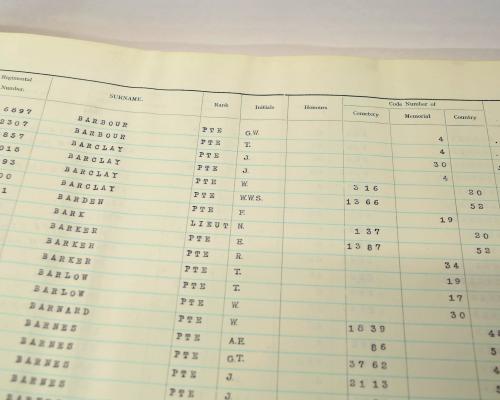 Regimental Number. SURNAME. Rank Initials Honours Code Number of
Cemetery Memorial Country
6897 BARBOUR PTE G.W. 4
2307 BARBOUR PTE T. 4
857 BARCLAY PTE J. 30
018 BARCLAY PTE J. 4
93 BARCLAY PTE W. 316 20
00 BARCLAY PTE W.W.S. 1366 52
1 BARDEN PTE F. 19
BARK LIEUT N. 137 20
BARKER PTE E. 1387 52
BARKER PTE R. 34
BARKER PTE T. 19
BARLOW PTE T. 17
BARLOW PTE W. 30
BARNARD PTE W. 1839
BARNES PTE A.E. 86 5
BARNES PTE G.T. 3762
BARNES PTE J. 2113
BARNES PTE J.